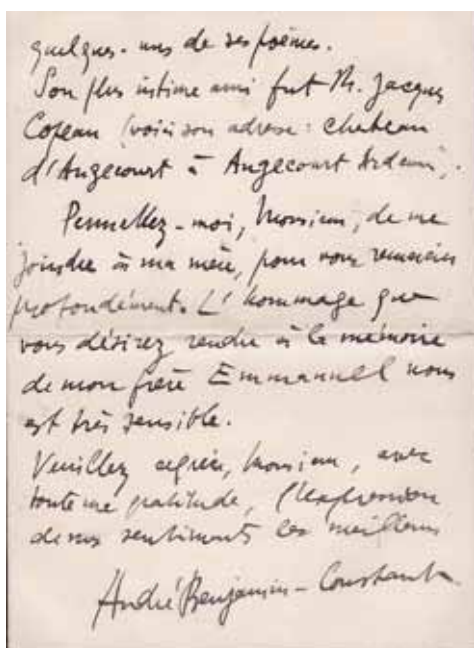 quelques-uns de ses poèmes.
Son plus intime ami fut M. Jacques
Copeau (voici son adresse : château
d'Angecourt à Angecourt Ardennes).
Permettez-moi, Monsieur, de me
joindre à ma mère, pour vous remercier
profondément. L'hommage que
vous désirez rendre à la mémoire
de mon frère Emmanuel nous
est très sensible.
Veuillez agréer, Monsieur, avec
toute ma gratitude, l'expression
de mes sentiments les meilleurs
André Benjamin-Constant